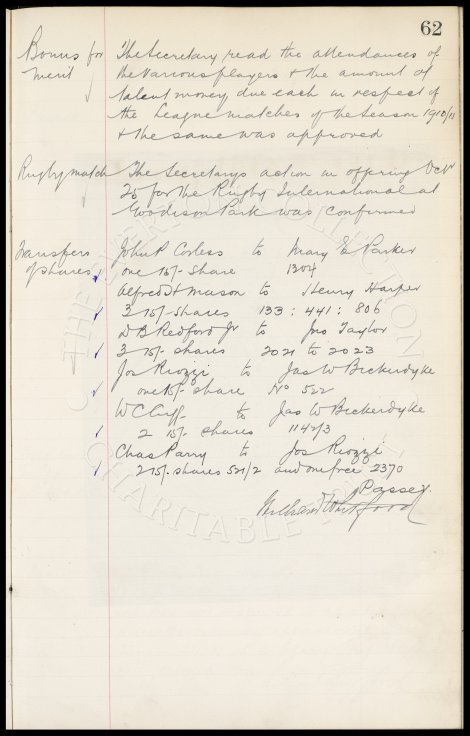 62
Bonus for
merit
The Secretary read the attendances of
the various players & the amount of
talent money due each in respect of
the League matches of the Season 1910/11
& the same was approved
Rugby match
The Secretarys action in offering Octr
25 for the Rugby International at
Goodison Park was confirmed
Transfers
of shares
John P Corless to Mary E Parker
one 15/- share 1304
Alfred H Mason to Henry Harper
3 15/- shares 133 : 441 : 806
D B Redford Jr to Jno Taylor
3 15/- shares 2021 to 2023
Jos Riozzi to Jas W Bickerdyke
one 15/- share No 522
W C Cuff to Jas W Bickerdyke
2 15/- shares 1142/3
Chas Parry to Jos Riozzi
2 15/- shares 521/2 and one free 2370
Passed
THE EVERTON COLLECTION
CHARITABLE TRUST